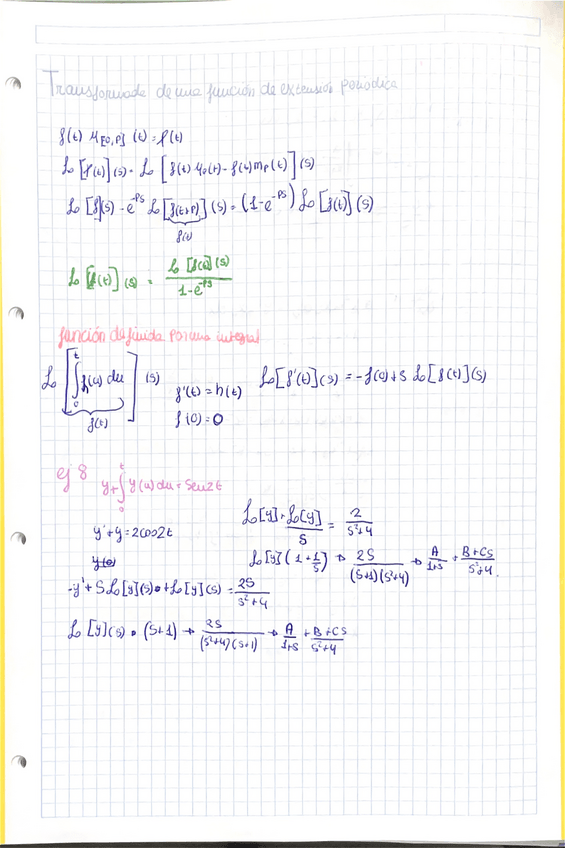 Transformada de una función de extensión periodica
f(t) μ[0,P] (t) = f(t)
ℒ [f(t)] (s) = ℒ [f(t) μ₀(t) - f(t) mp(t)] (s)
ℒ [f](s) - e^-PS ℒ [f(t+P)] (s) = (1-e^-PS) ℒ [f(t)] (s)
f(t)
ℒ [f(t)] (s) = ℒ [f(t)] (s) / 1-e^-PS
función definida por una integral
ℒ [∫₀ᵗ h(u) du] (s)
f(t)
f'(t) = h(t)
f(0) = 0
ℒ[f'(t)](s) = -f(0) + s ℒ[f(t)](s)
ej 8 y + ∫₀ᵗ y(u) du = sen2t
y' + y = 2cos2t
y(0)
-y' + S ℒ[y](s) + ℒ[y](s) = 2S / s²+4
ℒ [y](s) • (S+1) → 2S / (s²+4)(s+1) → A / 1+s + B+CS / s²+4
ℒ[y] + ℒ[y] / s = 2 / s²+4
ℒ[y] (1 + 1/s) → 2S / (S+1)(s²+4) → A / 1+s + B+CS / s²+4.